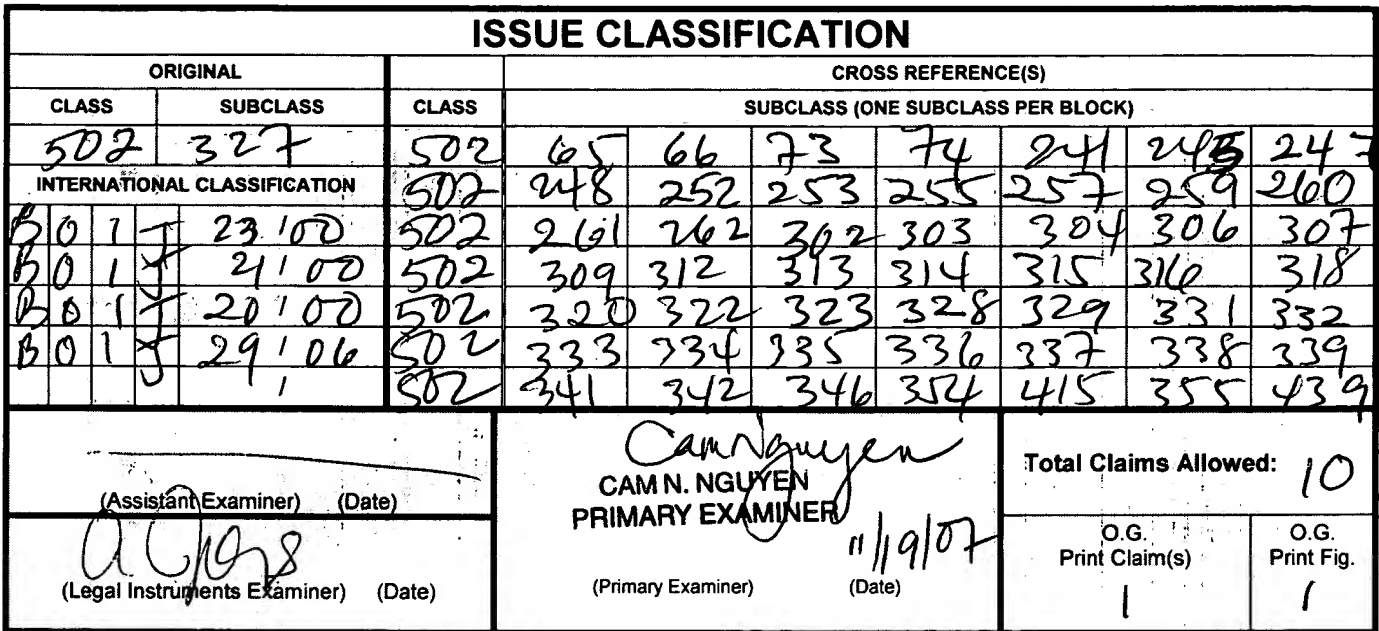 ISSUE CLASSIFICATION
ORIGINAL CROSS REFERENCE(S)
CLASS SUBCLASS CLASS SUBCLASS (ONE SUBCLASS PER BLOCK)
502 327 502 65 66 73 74 241 245 247
INTERNATIONAL CLASSIFICATION 502 248 252 253 255 257 259 260
B 0 1 J 23/00 502 261 262 302 303 304 306 307
B 0 1 J 21/00 502 309 312 313 314 315 316 318
B 0 1 J 20/00 502 320 322 323 328 329 331 332
B 0 1 J 29/06 502 333 334 335 336 337 338 339
/ 502 341 342 346 354 415 355 439
Cam Nguyen
CAM N. NGUYEN
PRIMARY EXAMINER
11/19/07
(Assistant Examiner) (Date)
(Legal Instruments Examiner) (Date)
(Primary Examiner) (Date)
Total Claims Allowed: 10
O.G. Print Claim(s)
1
O.G. Print Fig.
1